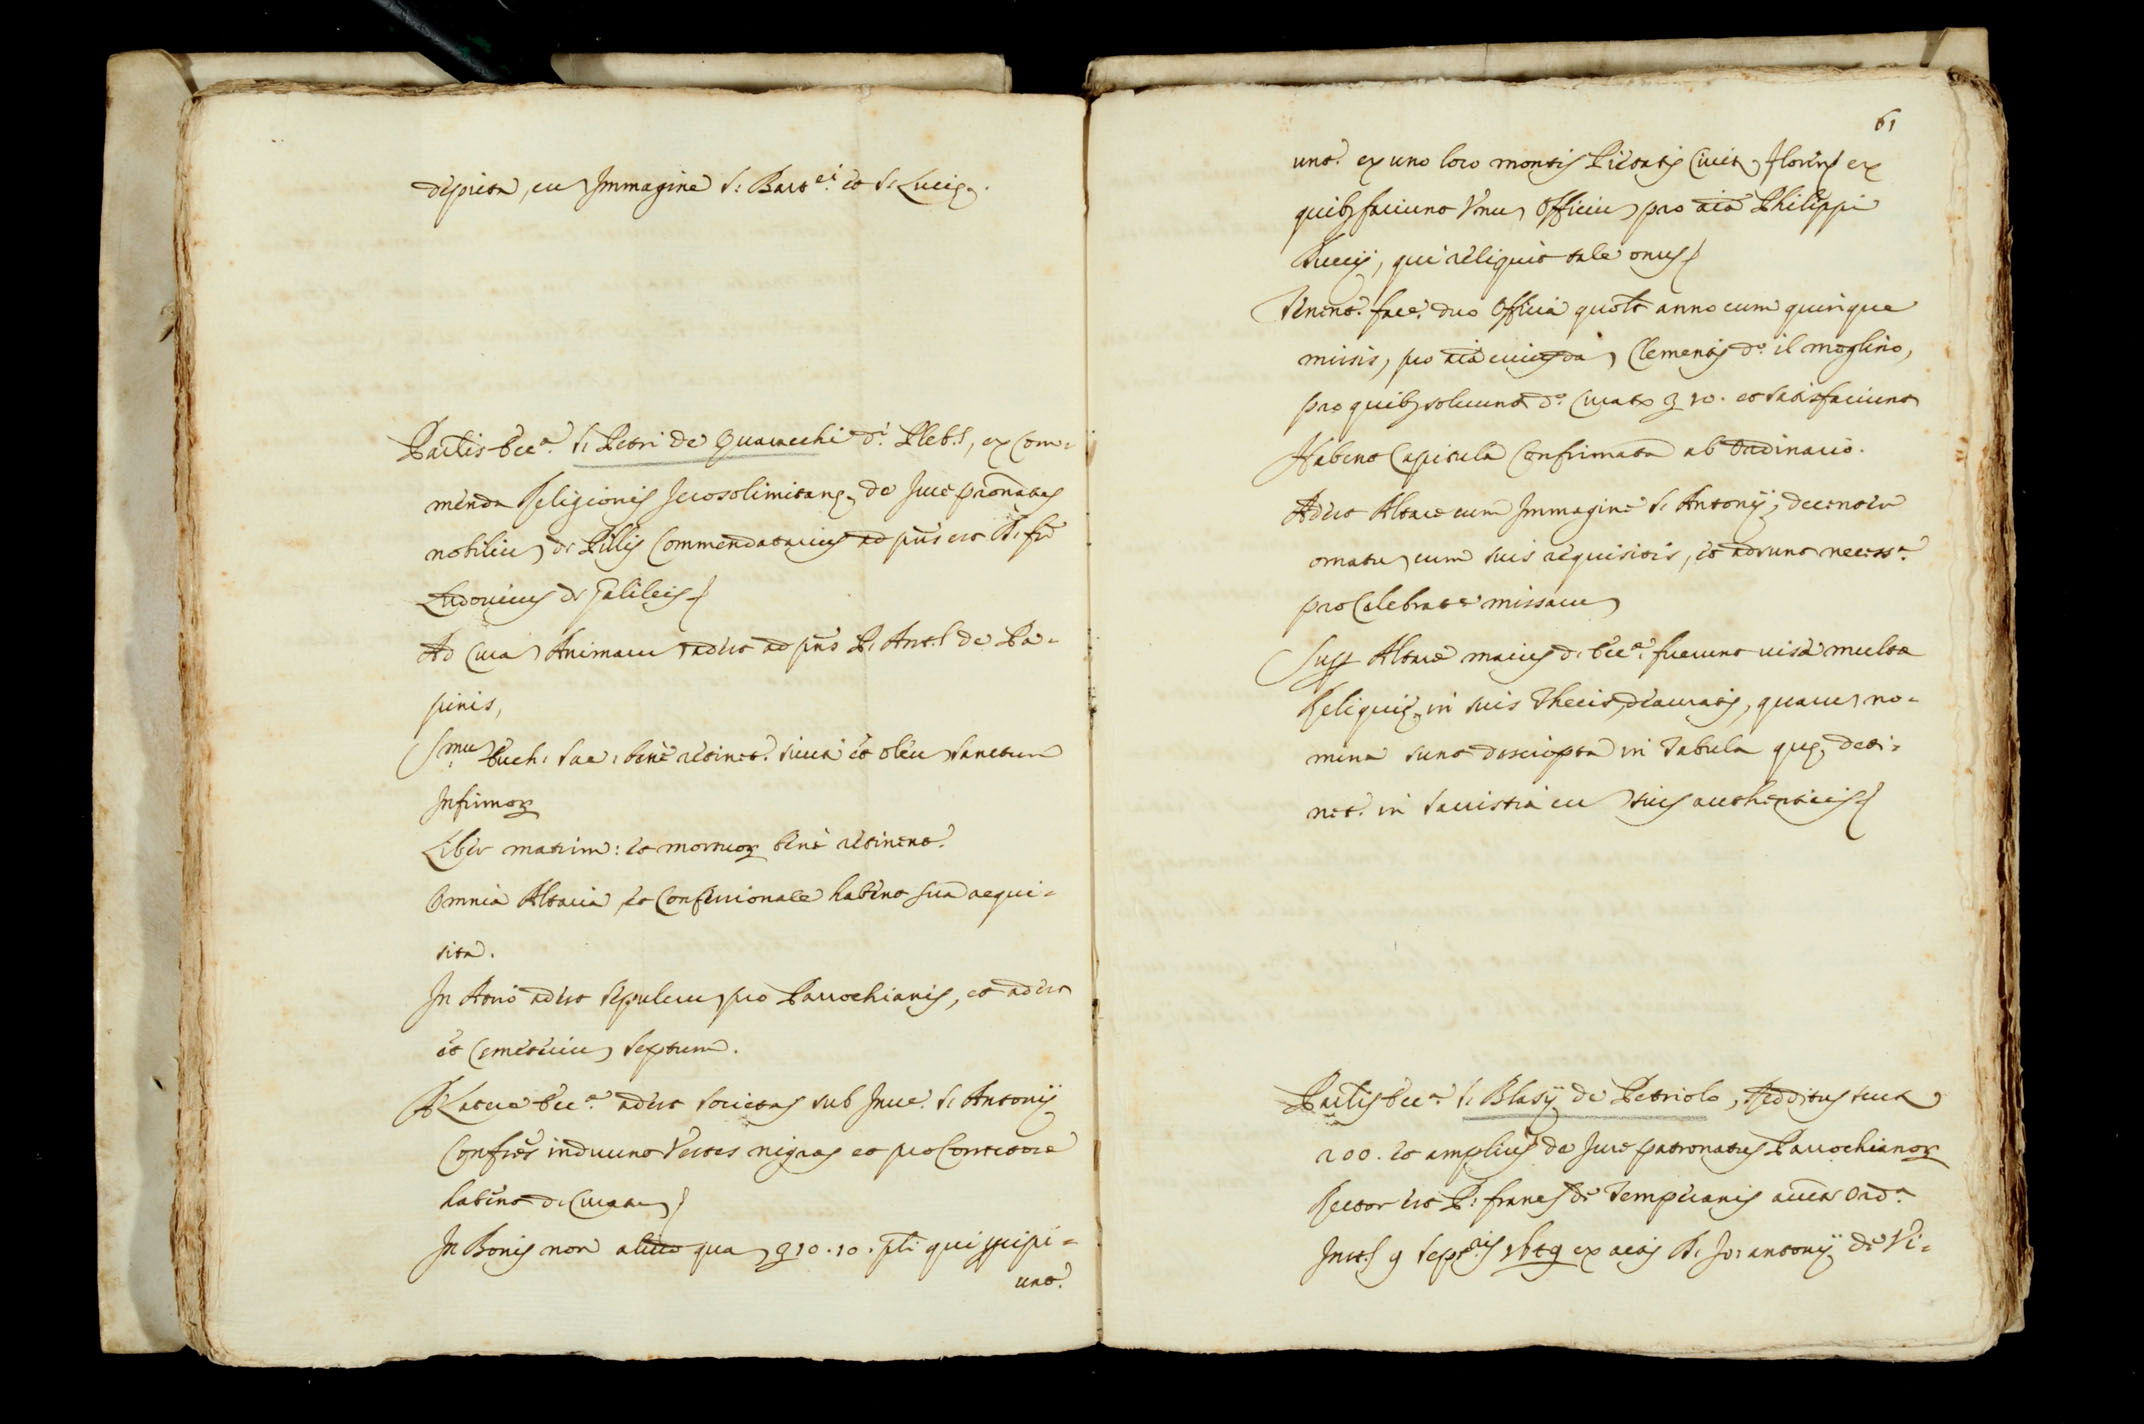 depicta, cu Immagine S. Bart.ei et S. Lucię.
Parlis Ecc.a S. Petri de Quaracchi d.i Pleb.s, ex Com=
menda Religionis Jerosolimitanę, de Jure pronatus
nobiliu de Pillis Commendatarius ad pñs est R. fr
Ludovicus de Galileis
Ad Cura Animarum adest ad pñs P. Ant.s de Pa=
pinis,
S.mu Euch: Sac: bene retinet. sicuti et oleu Sanctum
Infirmor
Liber matrim: et mortuor bene retinent.
Omnia Altaria, et Confessionale habent sua requi=
sita.
In Atrio adest Sepulcru pro Parrochianis, et adest
et Cemeteriu septum.
A Latere Ecc.a adest Societas sub Inuc. S. Antonij
Confres induunt Vestes nigras et pro Corretore
habent d. Curatu
In Bonis non aliud qua 10.10. pti qui pcipi=
unt.
61
unt. ex uno loco montis Pietatis Civit. Floren ex
quib faciunt Vnu Officiu pro aia Philippi
Buccij, qui reliquit tale onus
Tenent. face. duo Officia quolt anno cum quinque
missis, pro aia cuiusda Clementis d.o il moglino,
pro quib soluunt d.o Curato 10. et satisfaciunt
Habent Capitula Confirmata ab Ordinario.
Adest Altare cum Immagine S. Antonij, decenter
ornatu cum suis requisitis, et adsunt necess.a
pro Celebrate missaru
Supp Altare maius d. Ecc.a fuerunt uisa multa
Reliquię in suis Thecis deauratis, quaru no=
mina sunt descripta in Tabula quę deti=
net. in Sacristia cu suis authenticis
Parlis Ecc.a S. Blasij de Petriolo, Redditus scut
200. et amplius de Jure patronatus Parrochianor
Rector est P. Franc.s de Temperanis auctte Ord.a
Inst.s 9 Sept.ris ex actis R. Jo: Antonij de Vi=